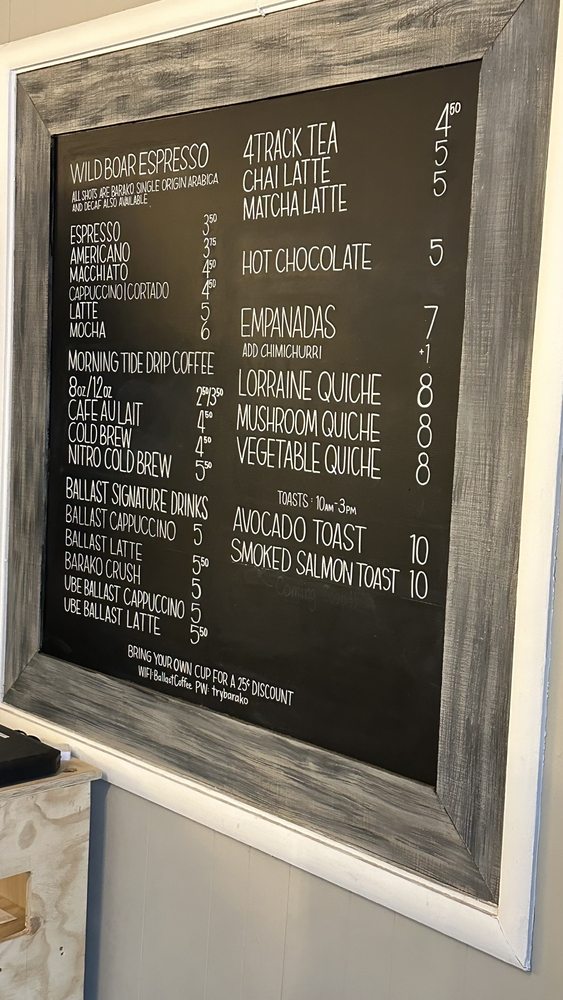 WILD BOAR ESPRESSO
ALL SHOTS ARE BARAKO SINGLE ORIGIN ARABICA
AND DECAF ALSO AVAILABLE
ESPRESSO 3.50
AMERICANO 3.75
MACCHIATO 4.50
CAPPUCCINO|CORTADO 4.50
LATTE 5
MOCHA 6
MORNING TIDE DRIP COFFEE
8oz/12oz 2.50/3.50
CAFE AU LAIT 4.50
COLD BREW 4.50
NITRO COLD BREW 5.50
BALLAST SIGNATURE DRINKS
BALLAST CAPPUCCINO 5
BALLAST LATTE 5.50
BARAKO CRUSH 5
UBE BALLAST CAPPUCCINO 5
UBE BALLAST LATTE 5.50
4TRACK TEA 4.50
CHAI LATTE 5
MATCHA LATTE 5
HOT CHOCOLATE 5
EMPANADAS 7
ADD CHIMICHURRI +1
LORRAINE QUICHE 8
MUSHROOM QUICHE 8
VEGETABLE QUICHE 8
TOASTS: 10AM-3PM
AVOCADO TOAST 10
SMOKED SALMON TOAST 10
BRING YOUR OWN CUP FOR A 25¢ DISCOUNT
WIFI: BallastCoffee PW: trybarako